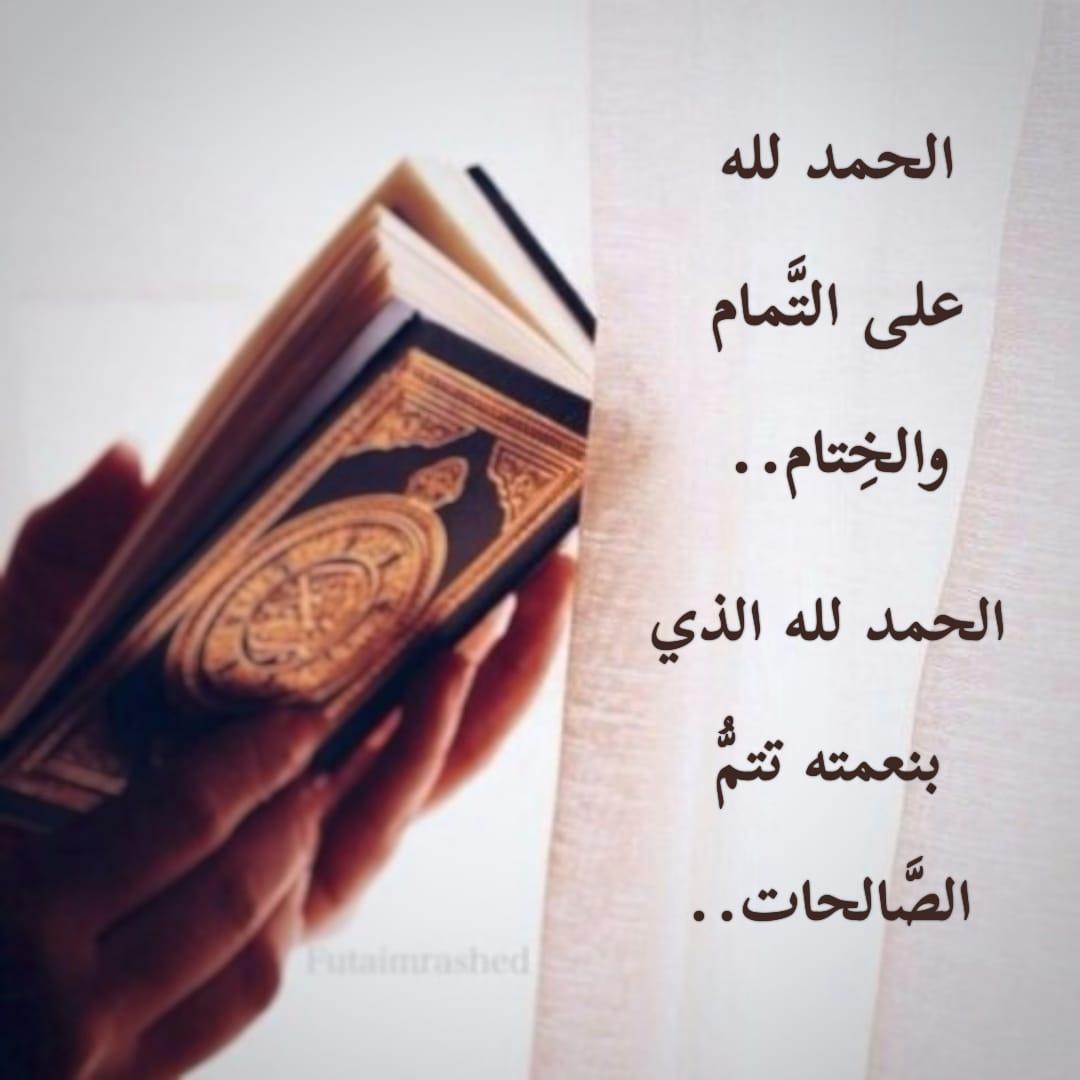 الحمد لله
على التَّمام
والخِتام..
الحمد لله الذي
بنعمته تتمُّ
الصَّالحات..
Futaimrashed